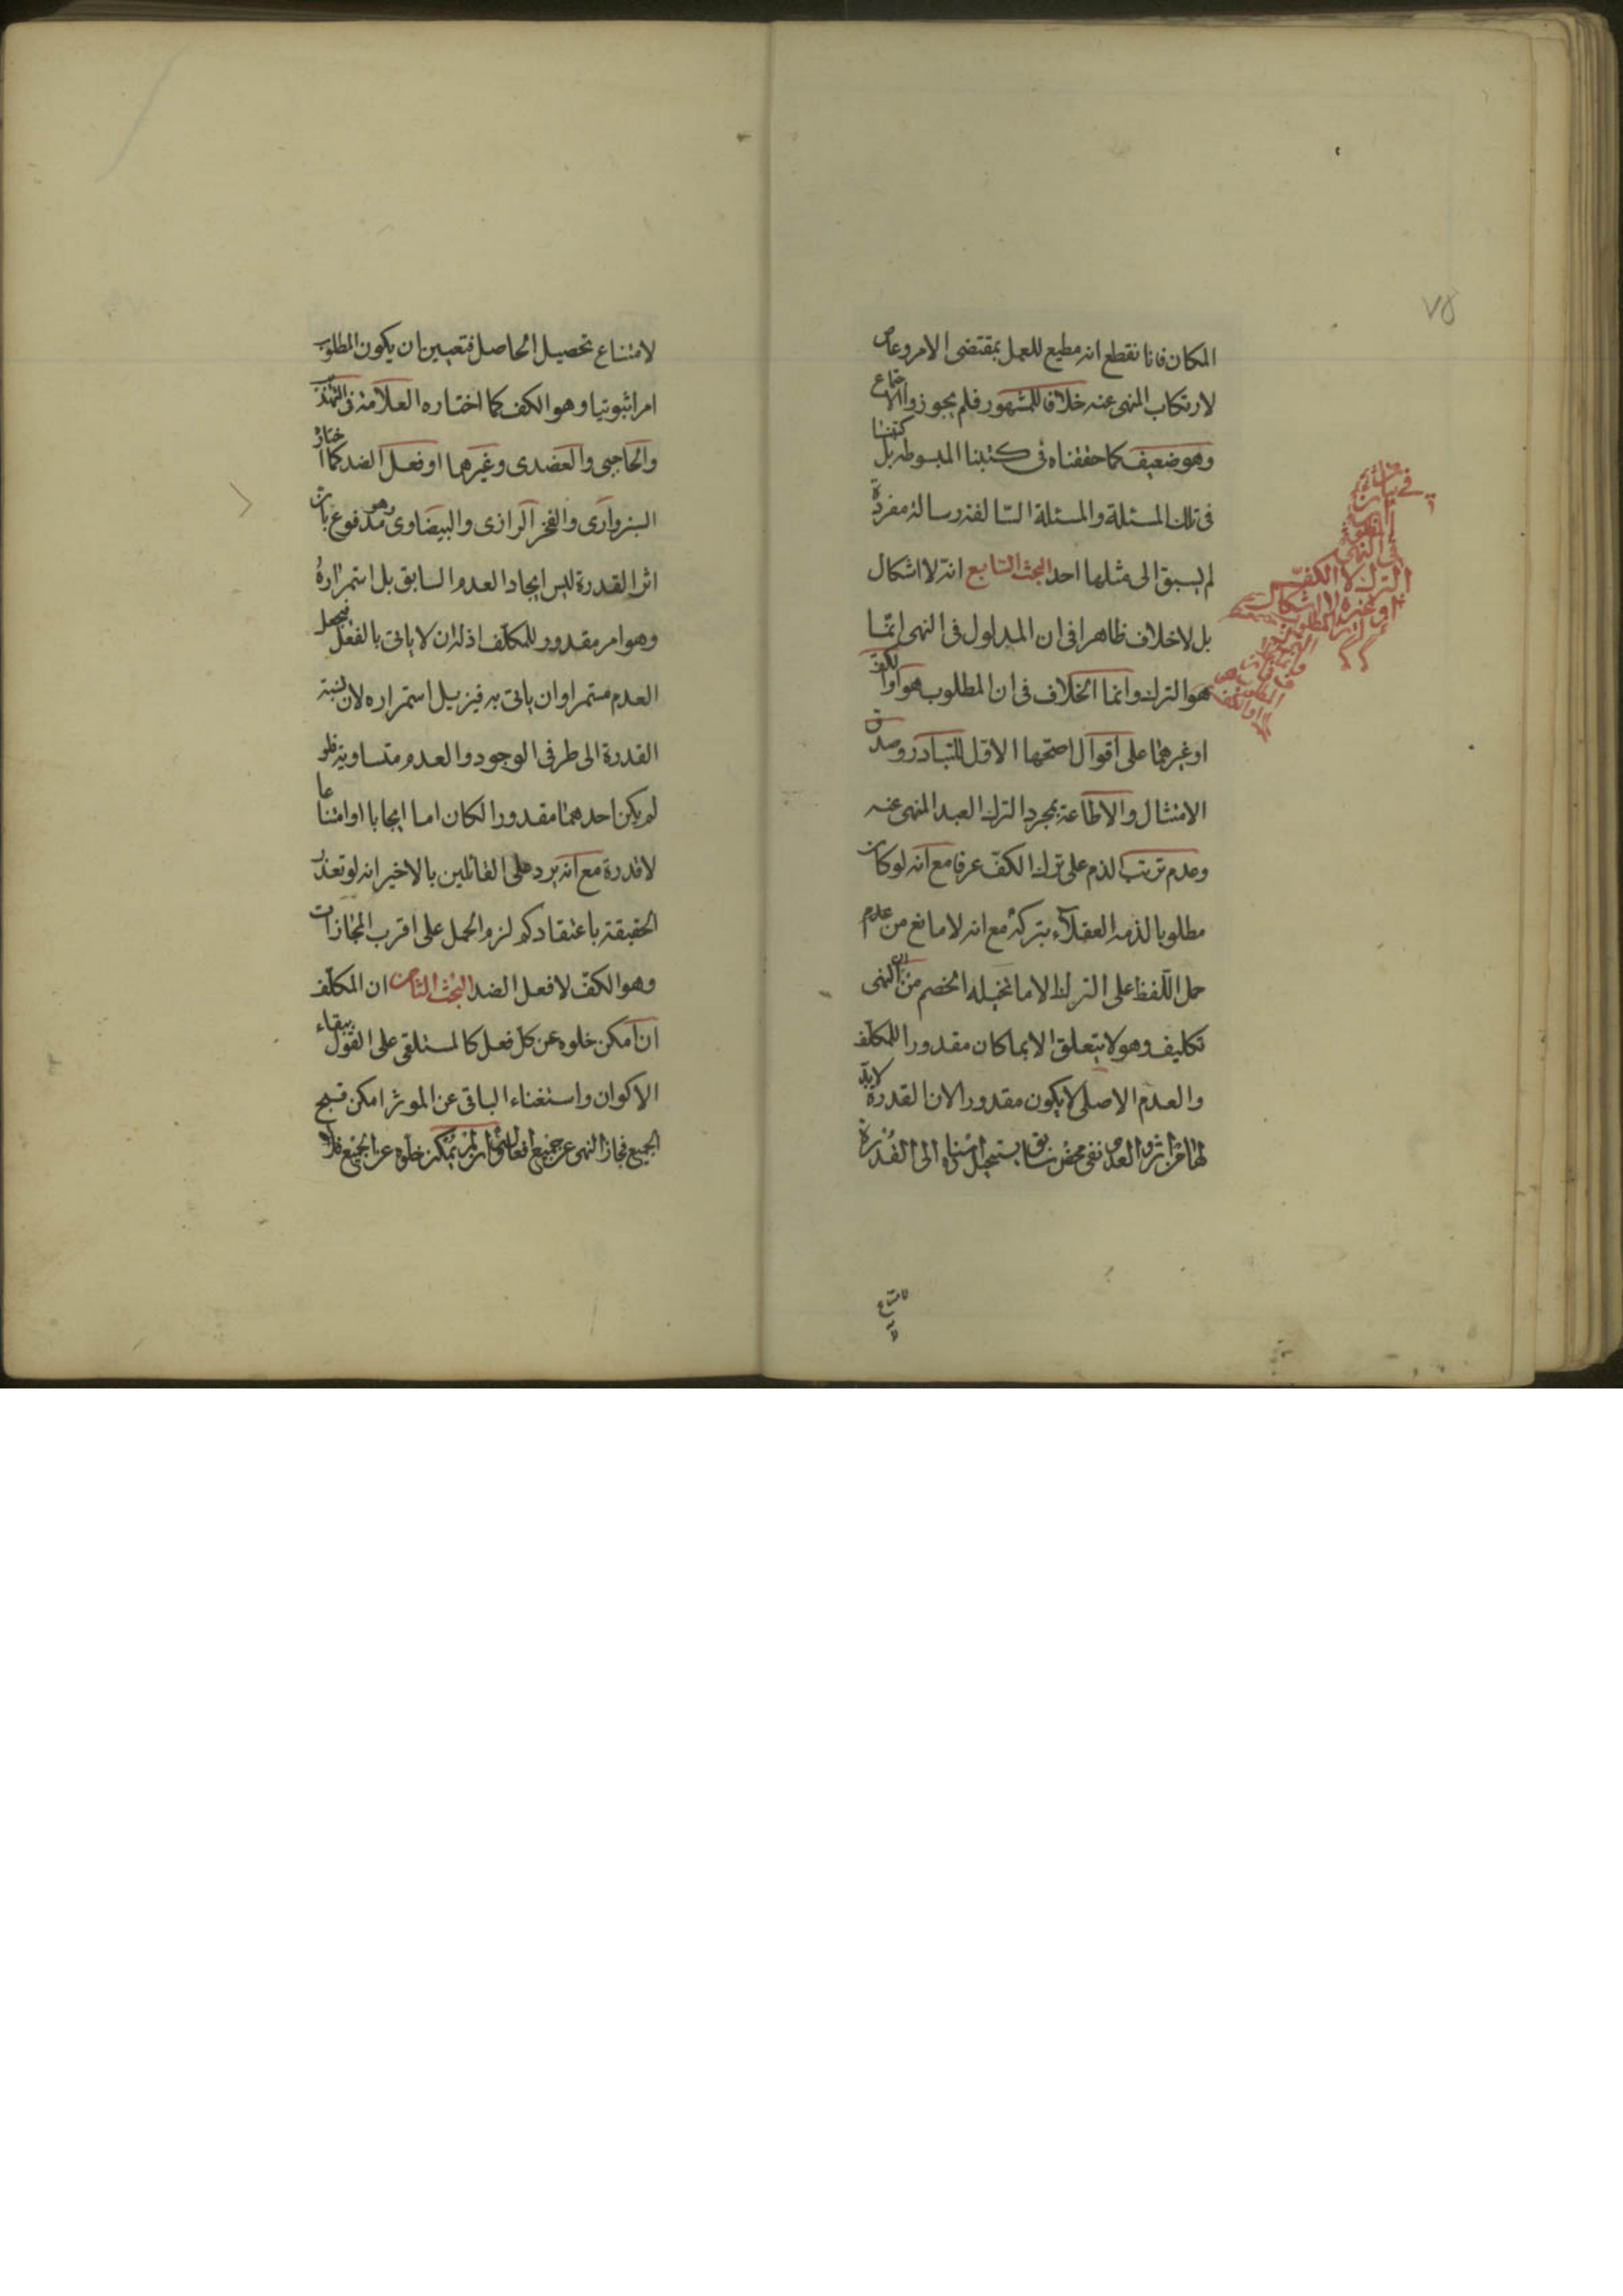 ٧٥
المكان فانا نقطع انه مطيع للعمل بمقتضى الامر وعاص
لارتكاب المنهى عنه خلافا للمشهور فلم يجوزوا الاجتماع
وهو ضعيف كما حققناه فى كتبنا المبسوطه بل كتبنا
فى تلك المسئلة والمسئلة السالفة رسالة مفردة
لم يسبق الى مثلها احد البحث السابع انه لا اشكال
بل لا خلاف ظاهرا فى ان المدلول فى النهى انما
هو الترك وانما الخلاف فى ان المطلوب هو او الكف
او غيرهما على اقوال اصحها الاول للتبادر وصدق
الامتثال والاطاعة بمجرد الترك العبد المنهى عنه
وعدم ترتب الذم على ترك الكف عرفا مع انه لو كان
مطلوبا لذمه العقلاء بتركه مع انه لا مانع من عدم
حمل اللفظ على الترك الا ما تخيله الخصم من ان النهى
تكليف وهو لا يتعلق الا بما كان مقدورا للمكلف
والعدم الاصلى لا يكون مقدورا لان القدرة لابد
لها من اثر والعدم نفى محض سابق يستحيل اسناده الى القدرة
لامتناع
فى بيان ان
المطلوب
بالنهى
الترك لا الكف
او غيره لا اشكال
لامتناع تحصيل الحاصل فتعين ان يكون المطلوب
امرا ثبوتيا وهو الكف كما اختاره العلامة فى التهذيب
والحاجبى والعضدى وغيرهما او فعل الضد كما اختار
السبزوارى والفخر الرازى والبيضاوى وهو مدفوع بان
اثر القدرة ليس ايجاد العدم السابق بل استمراره
وهو امر مقدور للمكلف اذ له ان لا ياتى بالفعل فيجعل
العدم مستمرا وان ياتى به فيزيل استمراره لان نسبة
القدرة الى طرفى الوجود والعدم متساوية فلو
لم يكن احدهما مقدورا لكان اما ايجابا او امتناعا
لا قدرة مع انه يرد على القائلين بالاخير انه لو تعذر
الحقيقة باعتقادكم لزم الحمل على اقرب المجازات
وهو الكف لا فعل الضد البحث الثامن ان المكلف
ان امكن خلوه عن كل فعل كالمستلقى على القول ببقاء
الاكوان واستغناء الباقى عن الموثر امكن قبح
الجميع فجاز النهى عن جميع افعاله وان لم يمكن خلوه عن الجميع فلا